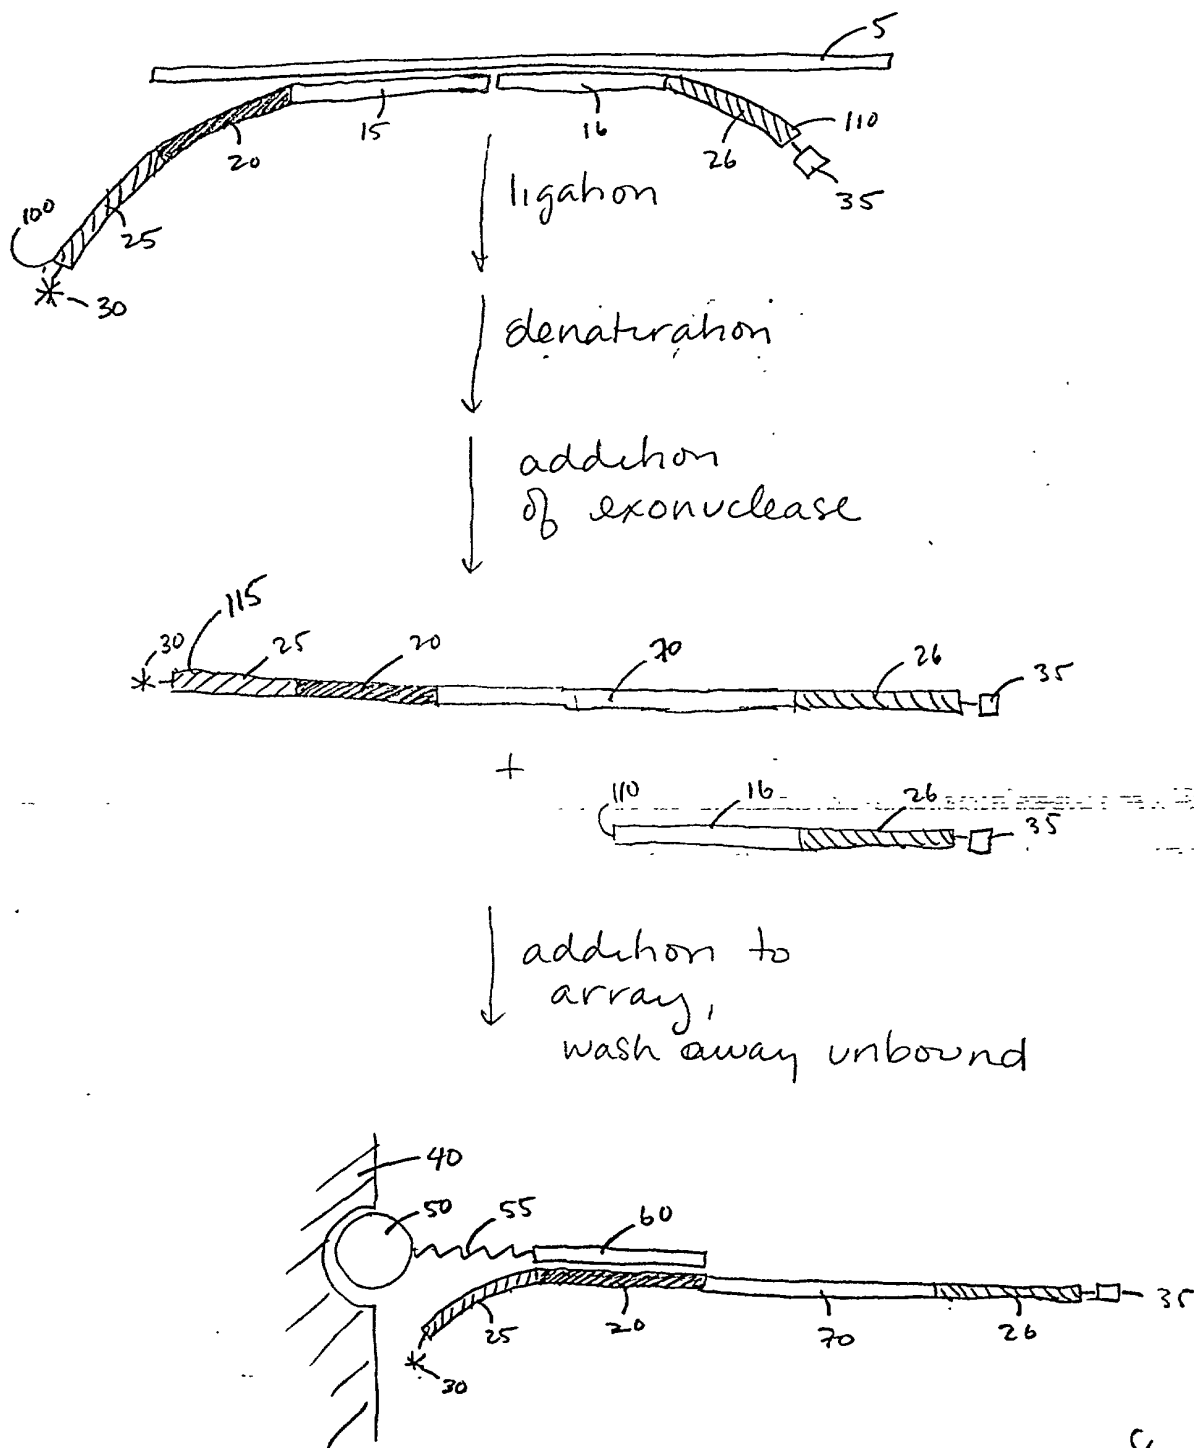 5
15
16
110
20
26
35
100
25
30
ligation
denaturation
addition
of exonuclease
115
30
25
20
70
26
35
+
110
16
26
35
addition to
array,
wash away unbound
40
50
55
60
35
25
20
70
26
30